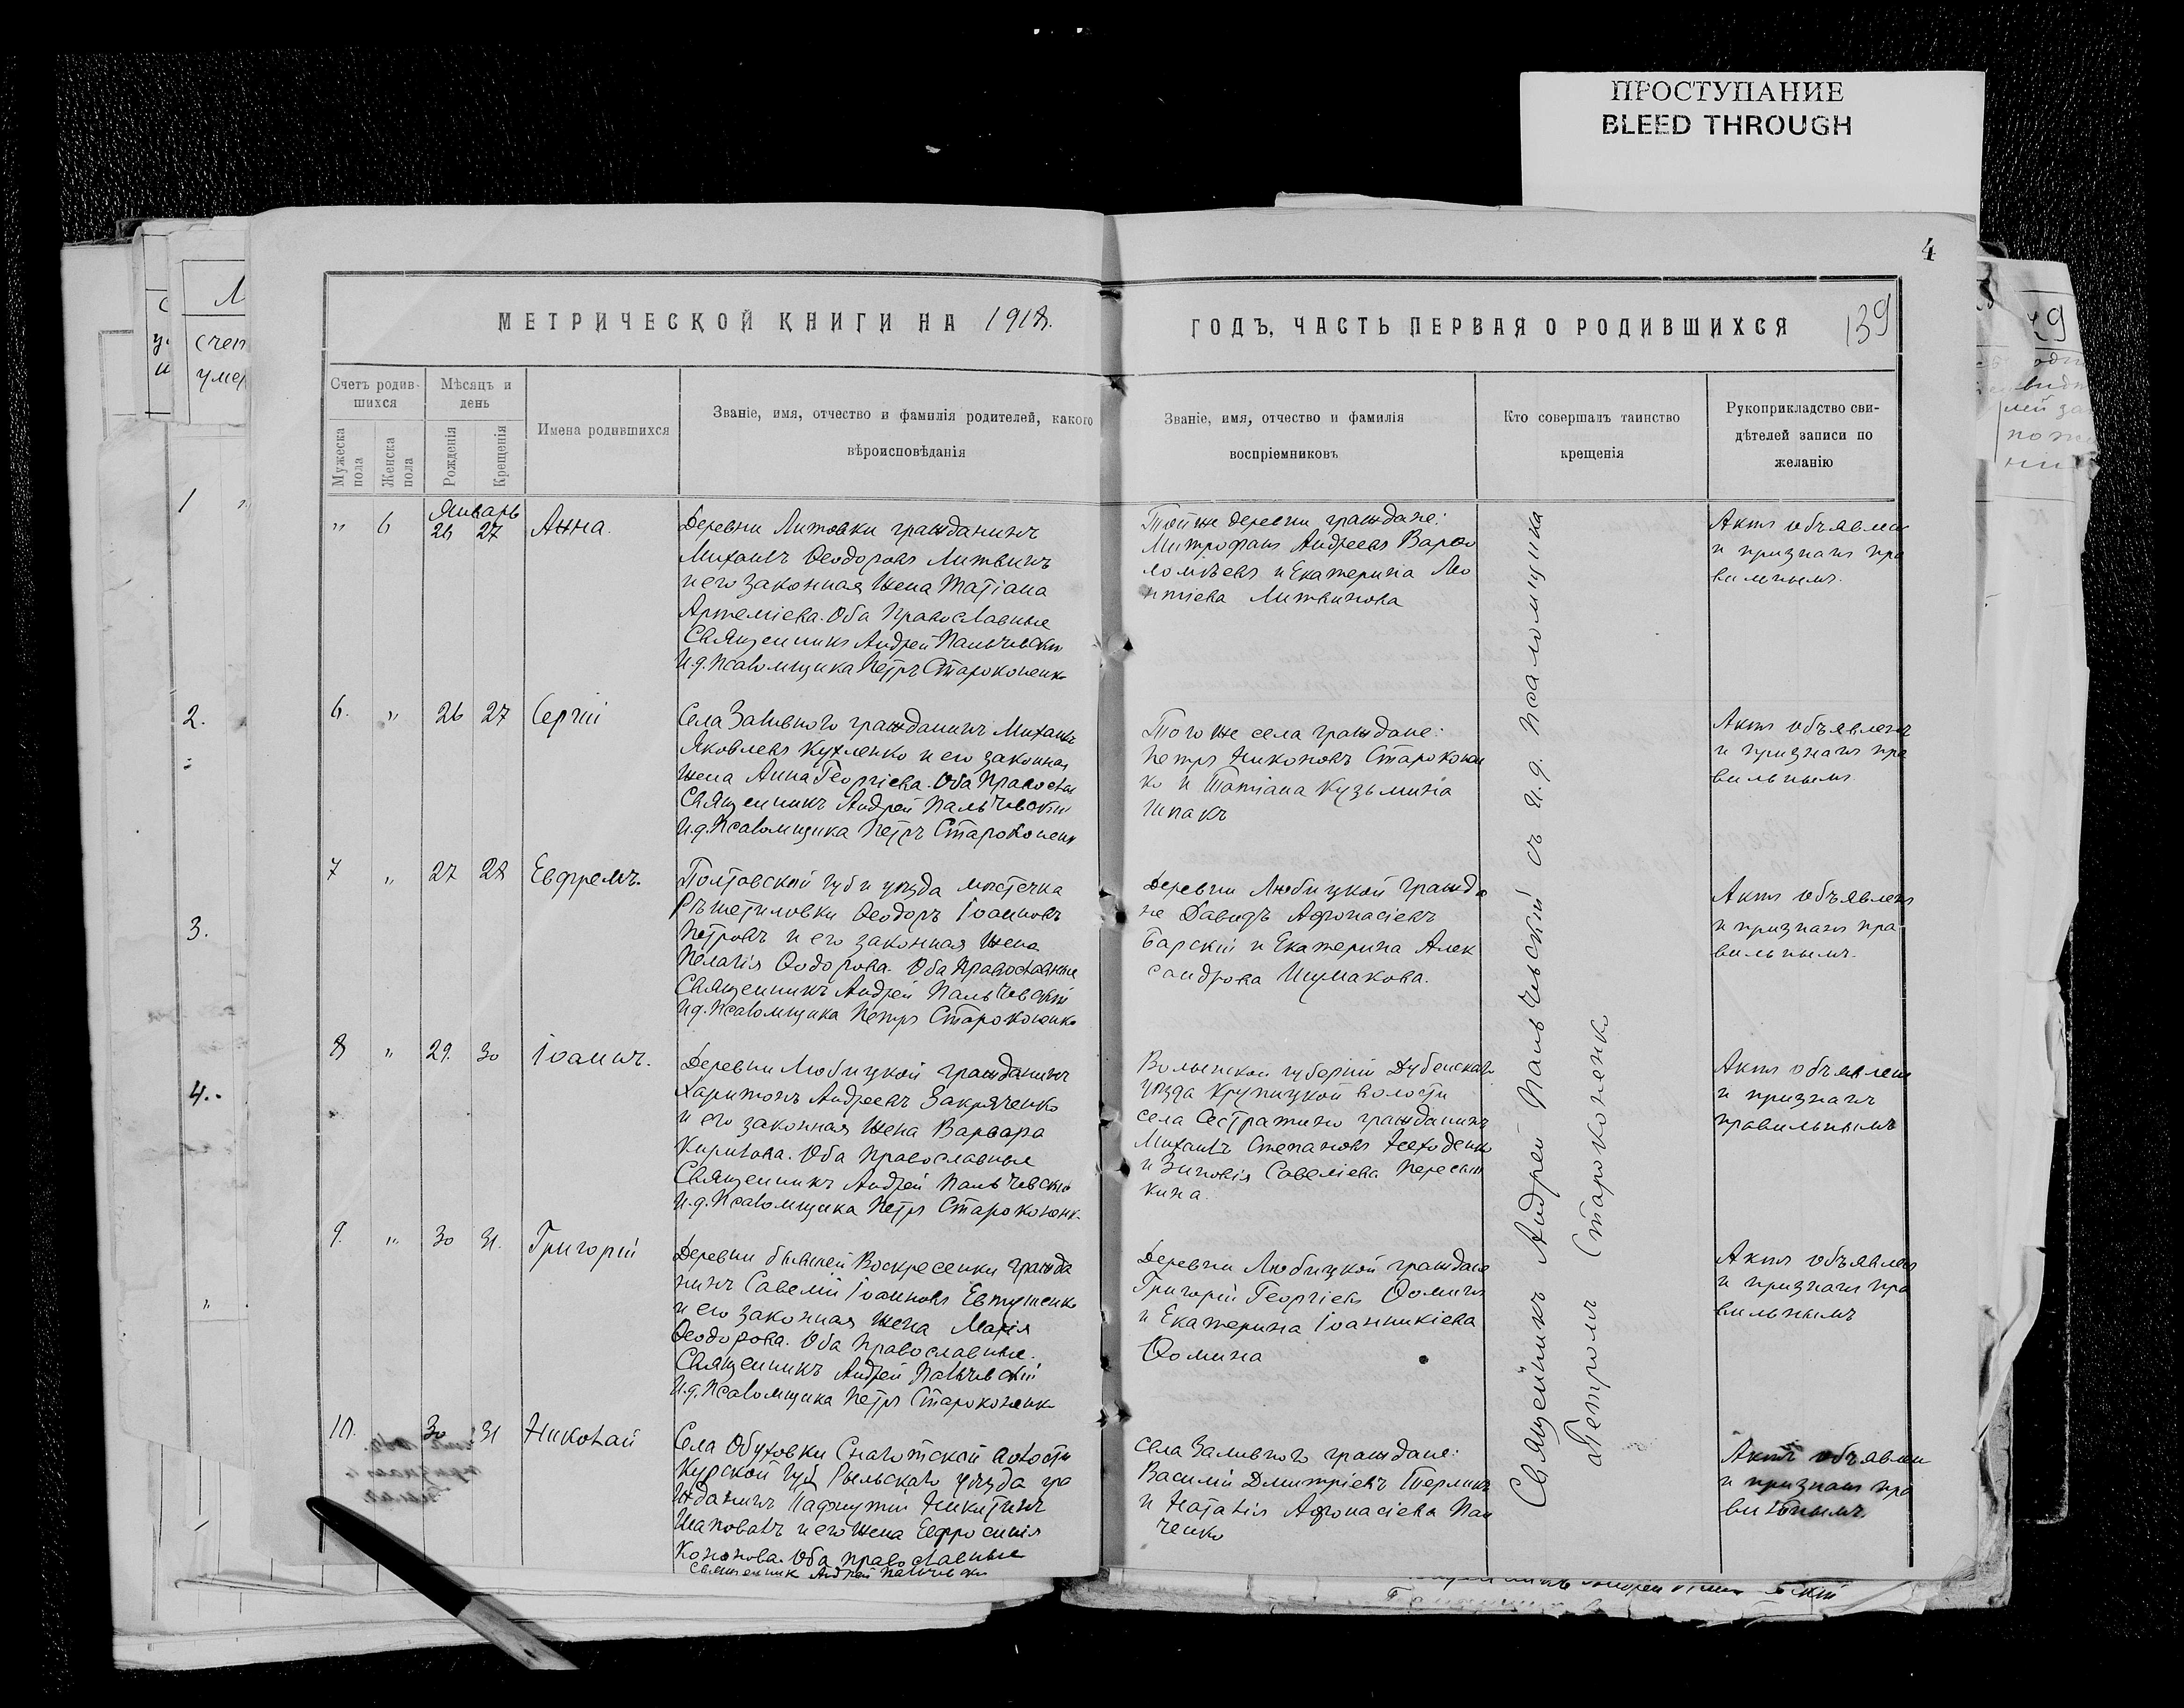 ПРОСТУПАНИЕ
BLEED THROUGH
4
МЕТРИЧЕСКОЙ КНИГИ НА 1918.
ГОДЪ, ЧАСТЬ ПЕРВАЯ О РОДИВШИХСЯ
139
Счетъ родив-
шихся
Мѣсяцъ и
день
Мужеска
пола
Женска
пола
Рожденія
Крещенія
Имена родившихся
Званіе, имя, отчество и фамилія родителей, какого
вѣроисповѣданія
Званіе, имя, отчество и фамилія
воспріемниковъ
Кто совершалъ таинство
крещенія
Рукоприкладство сви-
дѣтелей записи по
желанію
Январь
" 6 26 27 Анна.
Деревни Литовки гражданинъ
Михаилъ Ѳеодоровъ Литвинъ
и его законная жена Татіана
Артеміева. Оба Православные
Священникъ Андрей Пальчевскій
И.д. Псаломщика Петръ Староконенко
Той же деревни граждане:
Митрофанъ Андреевъ Варѳо
ломѣевъ и Екатерина Лео
нтіева Литвинова
Актъ объявленъ
и признанъ пра
вильнымъ.
6. " 26 27 Сергій
Села Заливного гражданинъ Михаилъ
Яковлевъ Кухленко и его законная
жена Анна Георгіева. Оба Правосл
Священникъ Андрей Пальчевскій
И.д. Псаломщика Петръ Староконенк
Того же села граждане:
Петръ Никоновъ Староконен
ко и Татіана Кузьмина
Шпакъ
Актъ объявленъ
и признанъ пра
вильнымъ.
7 " 27 28 Евфремъ.
Полтавской губ и уѣзда мѣстечка
Рѣшетиловки Ѳеодоръ Іоанновъ
Петровъ и его законная жена
Пелагія Ѳодорова. Оба Православные
Священникъ Андрей Пальчевскій
И.д. Псаломщика Петръ Староконенко
Деревни Любицкой гражда
не Давидъ Афонасіевъ
Барскій и Екатерина Алек
сандрова Шумакова.
Актъ объявленъ
и признанъ пра
вильнымъ.
8 " 29. 30 Іоаннъ.
Деревни Любицкой гражданинъ
Харитонъ Андреевъ Закряченко
и его законная жена Варвара
Кирилова. Оба Православные
Священникъ Андрей Пальчевскій
И.д. Псаломщика Петръ Староконенк
Волынской губерніи Дубенскаго
уѣзда Крупицкой волости
села Сестратино гражданинъ
Михаилъ Степановъ
и Зиновія Савеліева
кина.
Актъ объявленъ
и признанъ
правильнымъ
9. " 30 31. Григорій
Деревни бывшей Воскресенки гражда
нинъ Савелій Іоанновъ Евтушенко
и его законная жена Марія
Ѳеодорова. Оба Православные.
Священникъ Андрей Пальчевскій
И.д. Псаломщика Петръ Староконенк
Деревни Любицкой граждане
Григорій Георгіевъ Ѳоминъ
и Екатерина Іоанникіева
Ѳомина
Актъ объявленъ
и признанъ пра
вильнымъ
10. 30 31 Николай
Села Обуховки Снаготской волости
Курской губ Рыльскаго уѣзда гра
жданинъ Пафнутій Никитинъ
Шаповалъ и его жена Ефросинія
Кононова. Оба православные
Священник Андрей Пальчевскій
Села Заливного граждане:
Василій Димитріевъ
и Наталія Афонасіева Пан
ченко
Актъ объявлен
и признанъ пра
вильнымъ.
Священникъ Андрей Пальчевскій съ и.д. псаломщика
Петромъ Староконенко
1
2.
3.
4.